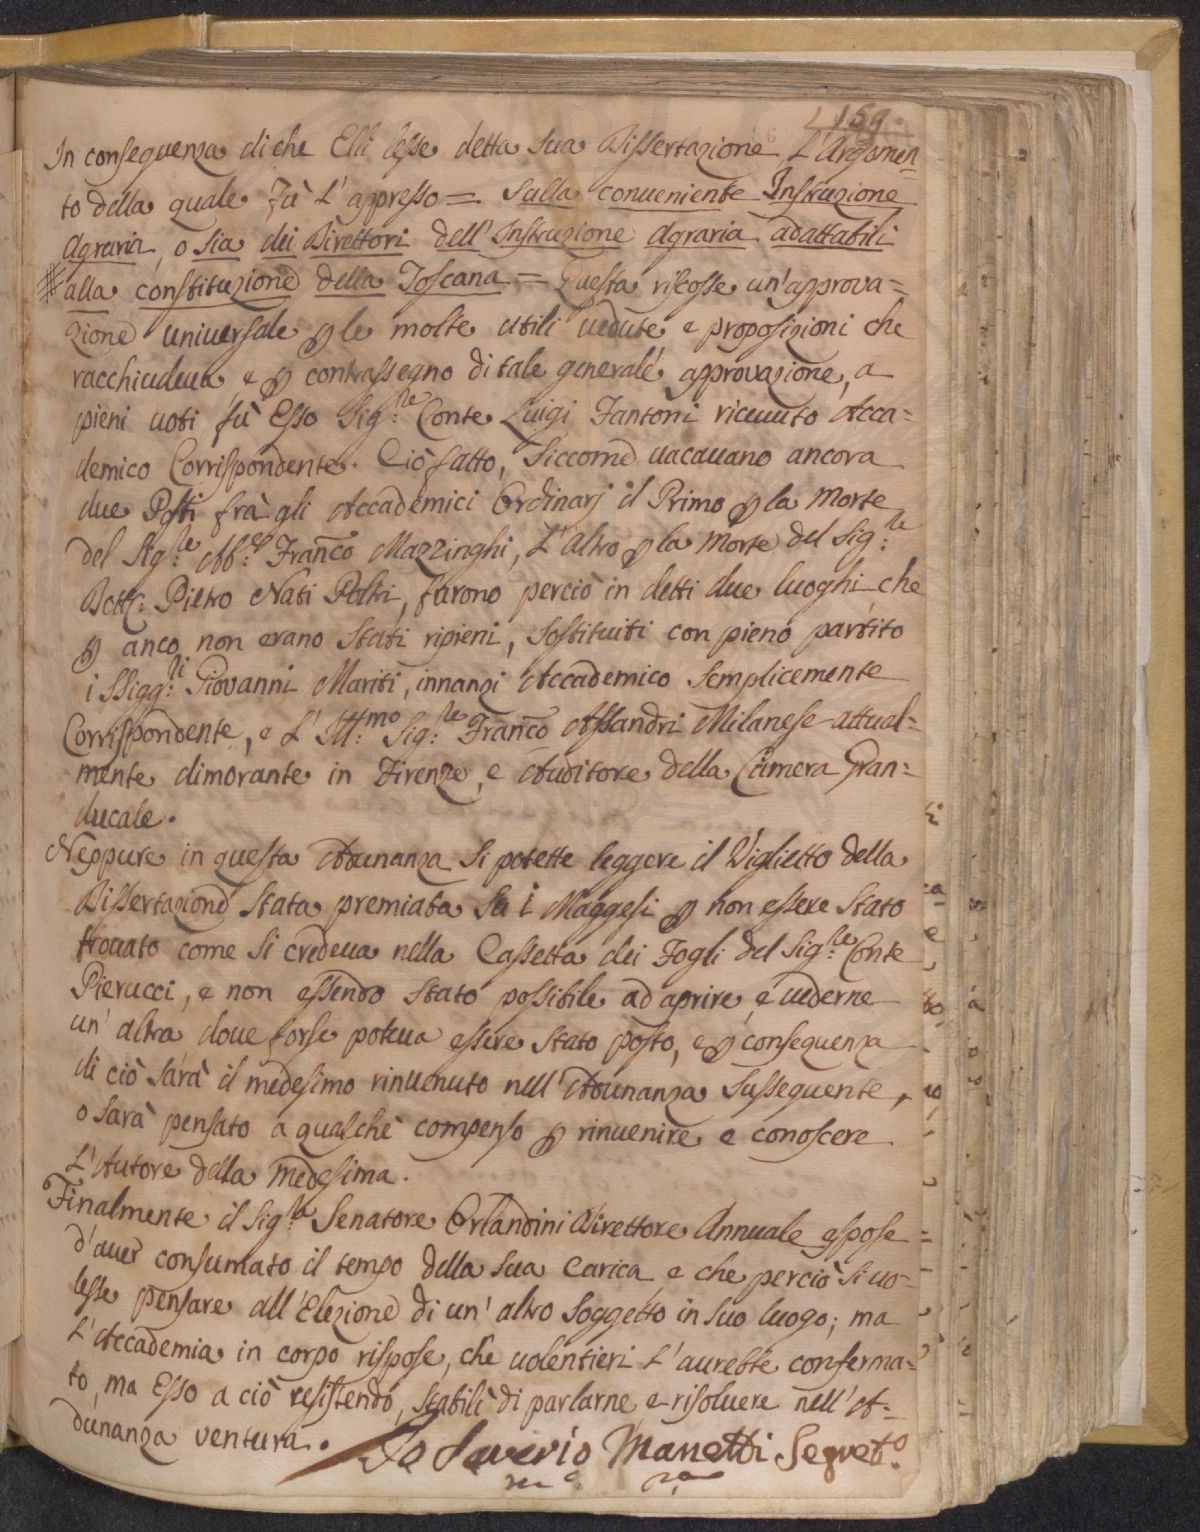 159.
In conseguenza di che Elli lesse detta sua Dissertazione L'Argomen
to della quale fù L'appresso = Sulla conueniente Instruzione
Agraria, o sia dei Direttori dell'Instruzione Agraria adattabili
# alla constituzione della Toscana = Questa riscosse un'approua=
zione uniuersale p le molte utili uedute e proposizioni che
racchiudeua e p contrassegno di tale generale approuazione, a
pieni uoti fù Esso Sig:re Conte Luigi Fantoni riceuuto Acca=
demico Corrispondente. Ciò fatto, Siccome uacauano ancora
due Posti frà gli Accademici Ordinarj il Primo p la Morte
del Sig:re Ab:e Franco Mazzinghi, L'Altro p la Morte del Sig:re
Dott: Pietro Nati Poltri, furono perciò in detti due luoghi che
p anco non erano Stati ripieni, Sostituiti con pieno partito
i SSigg:ri Giovanni Mariti, innanzi Accademico Semplicemente
Corrispondente, e L'Ill:mo Sig:re Franco Assandri Milanese attual=
mente dimorante in Firenze, e Auditore della Camera Gran=
ducale.
Neppure in questa Adunanza si potette leggere il Viglietto della
Dissertazione Stata premiata Su i Maggesi p non essere Stato
trouato come Si credeua nella Cassetta dei Fogli del Sig:re Conte
Pierucci, e non essendo Stato possibile ad aprire, e uederne
un'altra doue forse poteua essere Stato posto, e p conseguenza
di ciò Sarà il medesimo rinuenuto nell'Adunanza Susseguente,
o Sarà pensato a qualche compenso p rinuenire e conoscere
L'Autore della Medesima.
Finalmente il Sig:re Senatore Orlandini Direttore Annuale espose
d'auer consumato il tempo della Sua Carica e che perciò Si uo=
lesse pensare all'Elezione di un'altro Soggetto in Suo luogo; ma
L'Accademia in corpo rispose, che uolentieri L'aurebbe conferma=
to, ma Esso a ciò resistendo, Stabilì di parlarne e risoluere nell'A=
dunanza ventura. Io Saverio Manetti Segret:o